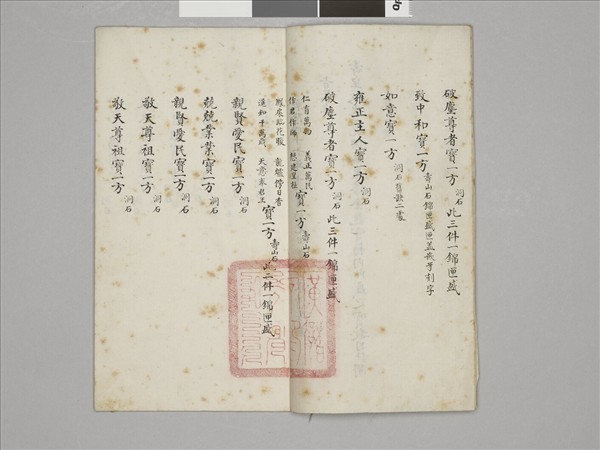 破塵尊者寶一方 洞石 此三件一錦匣盛
致中和寶一方 壽山石錦匣盛匣蓋嵌牙刻字
如意寶一方 洞石舊歙二處
雍正主人寶一方 洞石
破塵尊者寶一方 洞石 此三件一錦匣盛
仁育萬物 義正萬民
作君作師 寶一方 壽山石
鳳扆臨花暖 龍爐傍日香
遙知千萬歲 天意奉君王 寶一方 壽山石 此二件一錦匣盛
親賢愛民寶一方 洞石
兢兢業業寶一方 洞石
親賢愛民寶一方 洞石
敬天尊祖寶一方 洞石
敬天尊祖寶一方 洞石